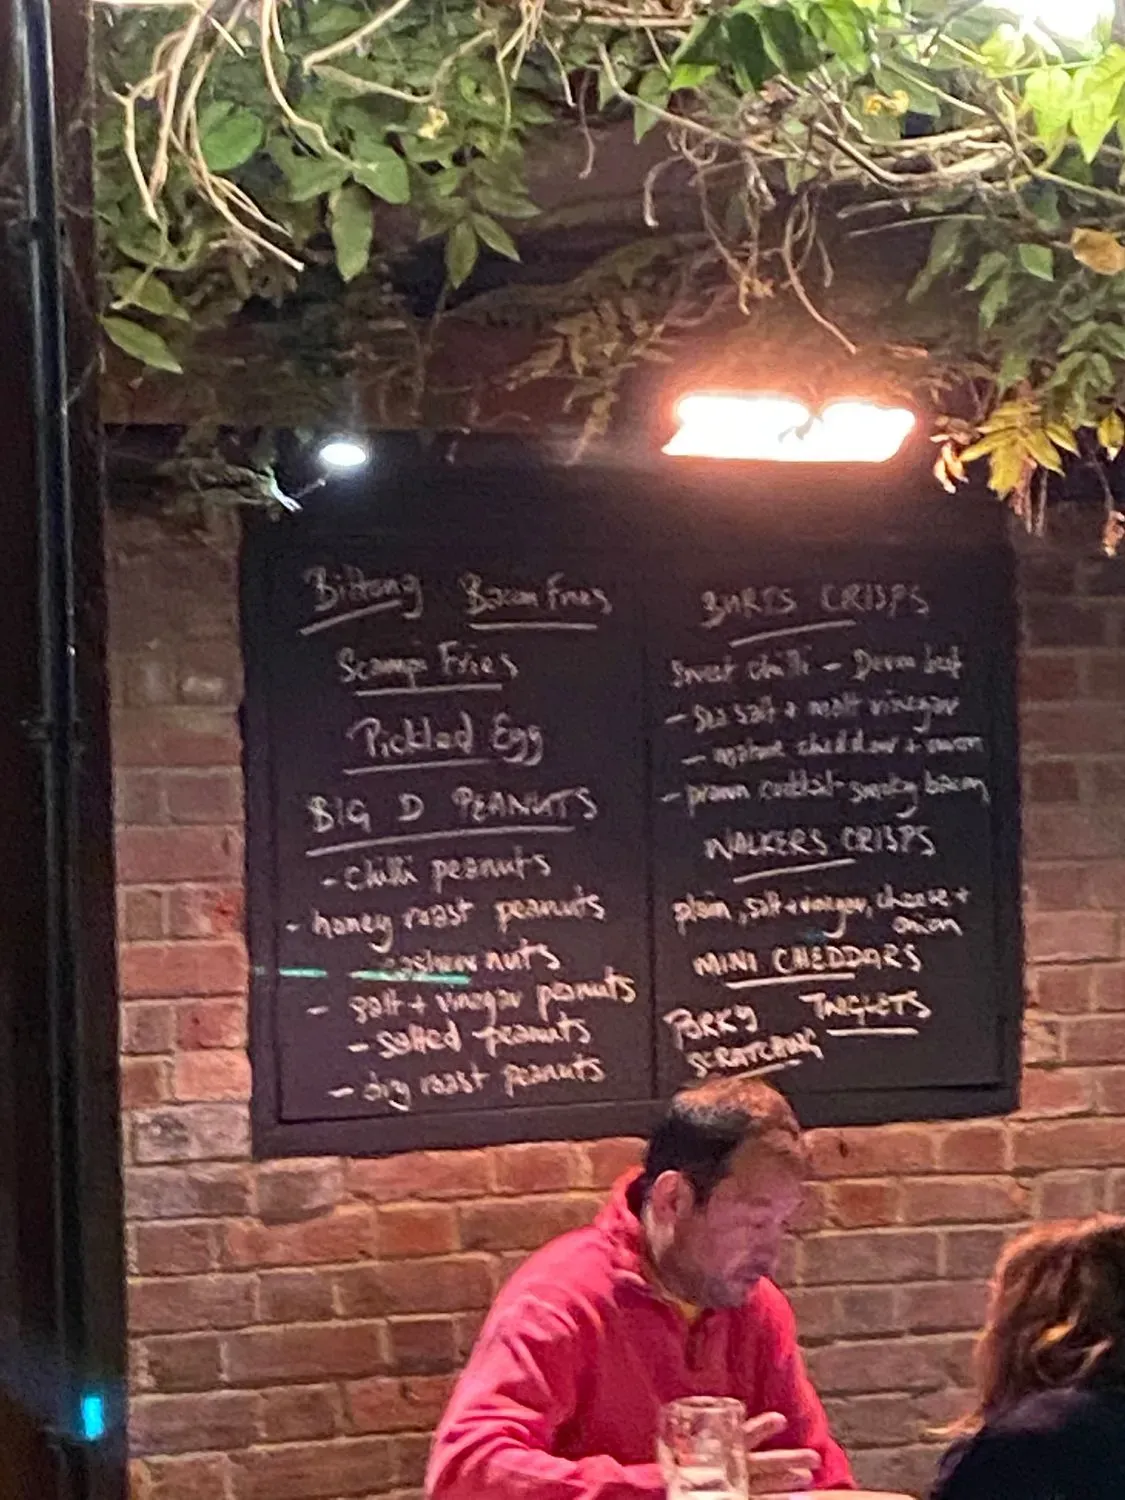 Biltong Bacon Fries
Scampi Fries
Pickled Egg
BIG D PEANUTS
- chilli peanuts
- honey roast peanuts
cashew nuts
- salt + vinegar peanuts
- salted peanuts
- dry roast peanuts
BURTS CRISPS
Sweet chilli - Devon beef
- sea salt + malt vinegar
- mature cheddar + onion
- prawn cocktail - smoky bacon
WALKERS CRISPS
plain, salt + vinegar, cheese +
onion
MINI CHEDDARS
PORKY TWIGLETS
SCRATCHING